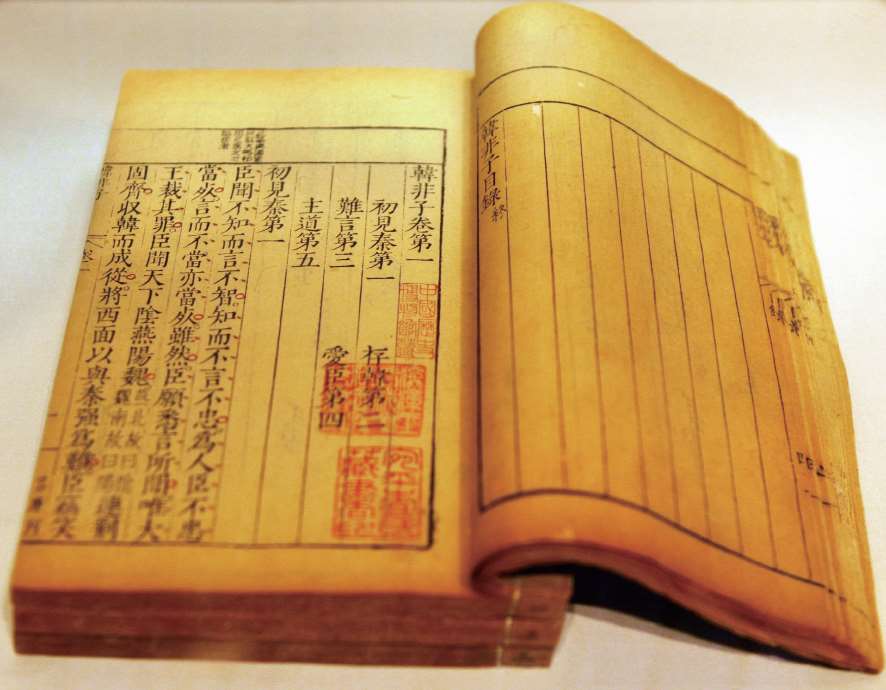 韓非子目錄終
韓非子卷第一
初見秦第一 存韓第二
難言第三 愛臣第四
主道第五
初見秦第一
臣聞不知而言不智知而不言不忠為人臣不忠
當死言而不當亦當死雖然臣願悉言所聞唯大
王裁其罪臣聞天下陰燕陽魏 北故曰陰 魏南故曰陽 連荊
固齊收韓而成從將西面以與秦强為難臣竊笑
韓非子 卷一